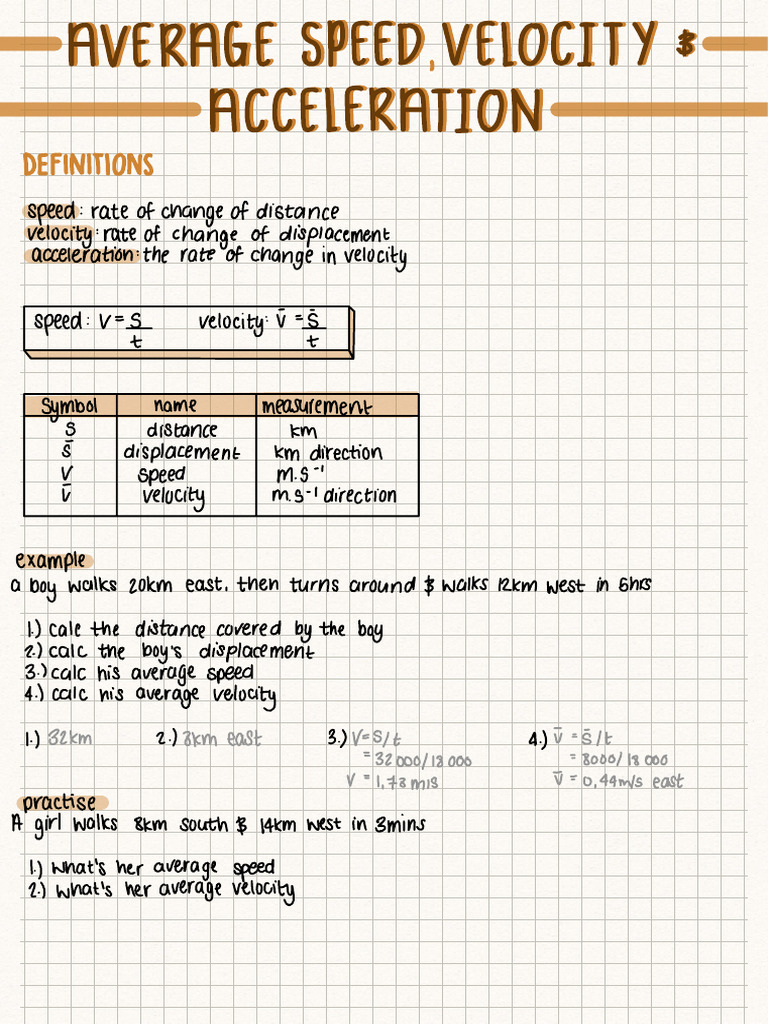 AVERAGE SPEED, VELOCITY &
ACCELERATION
DEFINITIONS
speed: rate of change of distance
velocity: rate of change of displacement
acceleration: the rate of change in velocity
speed: V = S/t velocity: v̄ = s̄/t
Symbol name measurement
S distance km
s̄ displacement km direction
V speed m.s⁻¹
v̄ velocity m.s⁻¹ direction
example
a boy walks 20km east, then turns around & walks 12km west in 5hrs
1.) calc the distance covered by the boy
2.) calc the boy's displacement
3.) calc his average speed
4.) calc his average velocity
1.) 32km 2.) 8km east 3.) V=S/t 4.) v̄ = s̄/t
= 32 000/18 000 = 8000/18 000
V = 1,78 m/s v̄ = 0,44m/s east
practise
A girl walks 8km south & 14km west in 3mins
1.) what's her average speed
2.) what's her average velocity